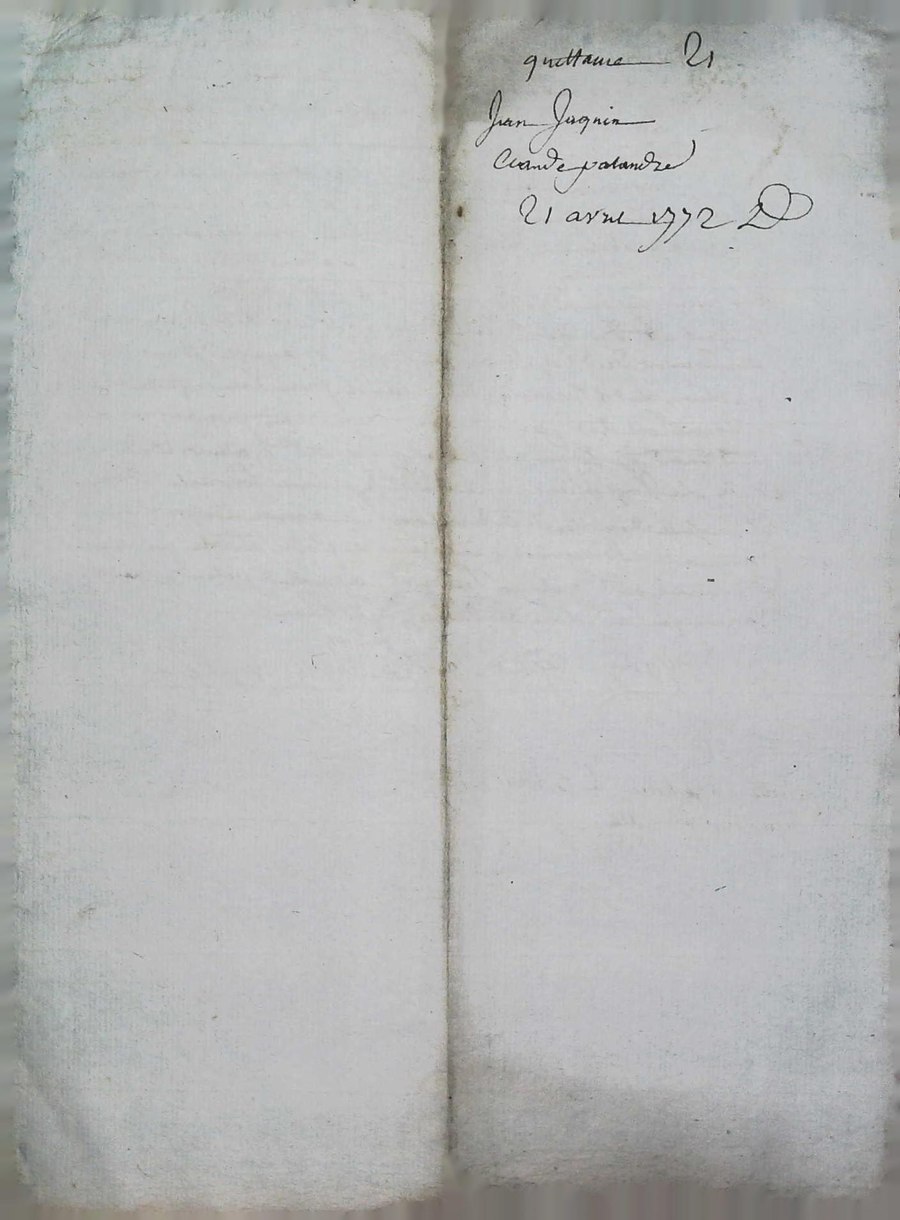 quittance 21
Jean Jaquin
Claude palandre
21 avril 1772